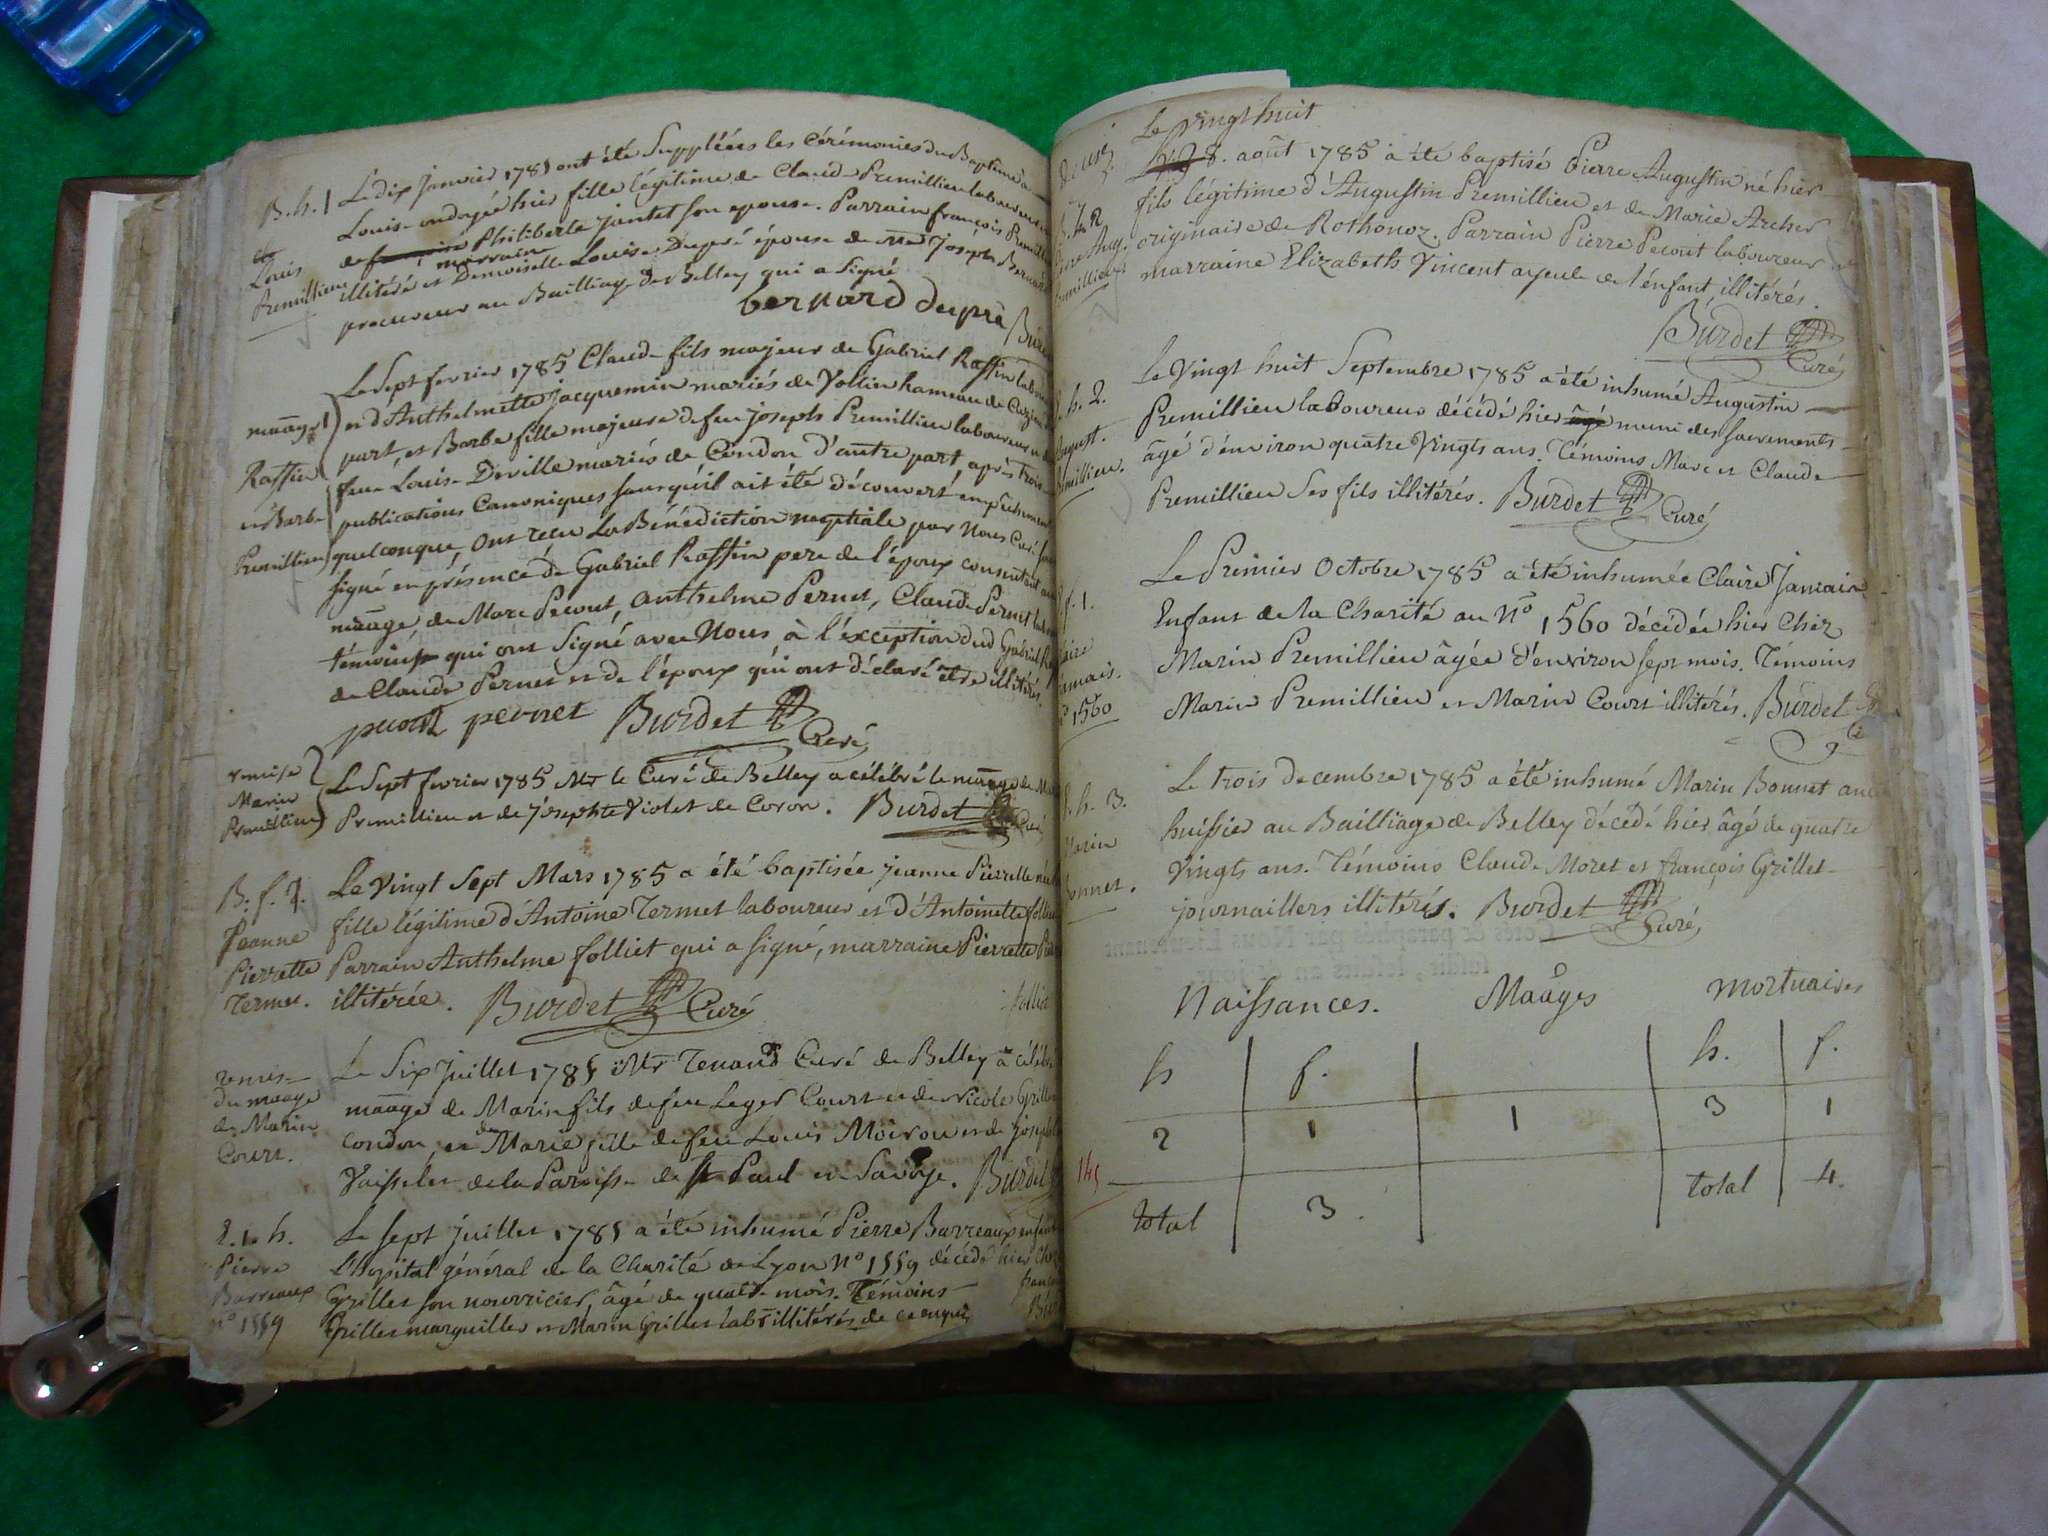 B. h. 1
Louis
Premillieu
Le dix Janvier 1785 ont été Suppléées les Cérémonies du Baptême à
Louis ondoyée hier fille légitime de Claude Premillieu laboureur
de Philiberte jantet son epouse. Parrain françois
marraine
illitéré et Demoiselle Louise Dupré épouse de Me Joseph Bernard
procureur au Bailliage de Belley qui a signé
bernard dupré
maage 1
Raffin
et Barbe
Premillieu
Le Sept fevrier 1785 Claude fils majeur de Gabriel Raffin
et d'Anthelmette jacquemin mariés de Vollien hameau de
part, et Barbe fille majeure de feu joseph Premillieu laboureur
feue Louise Diville mariés de Condon d'autre part, après trois
publications Canoniques sans qu'il ait été découvert empêchement
quelconque, ont recu La Bénédiction nuptiale par Nous Curé
signé en présence de Gabriel Raffin pere de l'époux consentant au
maage de Marc Pecout, Anthelme Pernet, Claude Pernet
témoins qui ont signé avec Nous à l'exception dud Gabriel
de Claude Pernet et de l'époux qui ont déclaré être illitérés
pecout pernet Burdet Curé
remise
Marin
Premillieu
Le Sept fevrier 1785 Mr le Curé de Belley a célébré le maage de
Premillieu et de Josephte Violet de Coron. Burdet Curé
B. f. 1.
Jeanne
Pierrette
Termet.
Le Vingt Sept Mars 1785 a été baptisée jeanne Pierrette
fille légitime d'Antoine Termet laboureur et d'Antoinette
Parrain Anthelme folliet qui a signé, marraine Pierrette
illitérée. Burdet Curé
remise
du maage
de Marin
Court.
Le Six Juillet 1785 Mr Tenand Curé de Belley a célébré
maage de Marin fils de feu Leger Court et de Nicole
Condon, et de Marie fille de feu Louis Moirou et de
Vaisselet de la Paroisse de St Paul en Savoye. Burdet
E. 1. h.
Pierre
Barreaux
n° 1559
Le sept Juillet 1785 a été inhumé Pierre Barreaux enfant
L'hopital général de la Charité de Lyon N° 1559 décédé hier chez
Grillet son nourricier, âgé de quatre mois. Témoins
Grillet marguillier et Marin Grillet labr illitérés de ce enquis
Le Vingt huit
août 1785 a été baptisé Pierre Augustin né hier
fils légitime d'Augustin Premillieu et de Marie Archer
originaire de Rothonoz. Parrain Pierre Pecout laboureur
marraine Elizabeth Vincent ayeule de l'enfant illitérés.
Burdet
Curé
h. 2.
August.
Premillieu.
Le Vingt huit Septembre 1785 a été inhumé Augustin
Premillieu laboureur décédé hier muni des sacrements
âgé d'environ quatre Vingts ans. Témoins Marc et Claude
Premillieu Ses fils illitérés. Burdet Curé
f. 1.
Claire
Jamais.
n° 1560
Le Premier Octobre 1785 a été inhumée Claire
Enfant de la Charité au N° 1560 décédée hier Chez
Marin Premillieu âgée d'environ sept mois. Témoins
Marin Premillieu et Marin Court illitérés. Burdet
h. 3.
Marin
Bonnet.
Le trois decembre 1785 a été inhumé Marin Bonnet
huissier au Bailliage de Belley décédé hier âgé de quatre
Vingts ans. Témoins Claude Moret et françois Grillet
journaillers illitérés. Burdet
Curé
Naissances. Maages mortuaires
h f. h. f.
2 1 1 3 1
total 3. total 4.
145